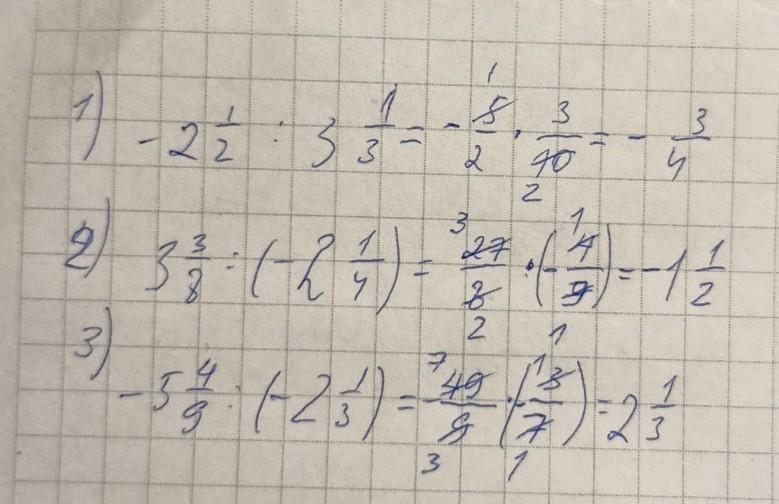 1) -2 1/2 : 3 1/3 = - 5/2 · 3/10 = - 3/4
2) 3 3/8 : (-2 1/4) = 27/8 · (- 4/9) = -1 1/2
3) -5 4/9 : (-2 1/3) = 49/9 · (- 3/7) = 2 1/3